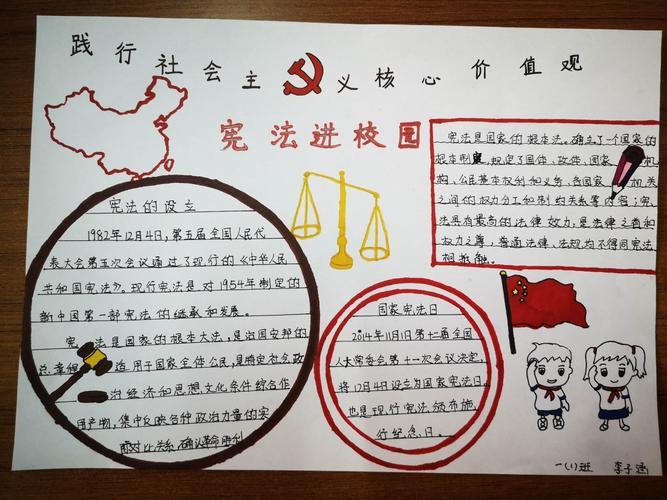 践行社会主义核心价值观
宪法进校园
宪法的设立
1982年12月4日,第五届全国人民代
表大会第五次会议通过了现行的《中华人民
共和国宪法》。现行宪法是对1954年制定的
新中国第一部宪法的继承和发展。
宪法是国家的根本大法,是治国安邦的
总章程 适用于国家全体公民,是特定社会政
治经济和思想文化条件综合作
用产物,集中反映各种政治力量的实
际对比关系,确认革命胜利
宪法是国家的根本法。确立了一个国家的
根本制度,规定了国体、政体、国家 机
构、公民基本权利和义务,各国家 机关
之间的权力分工和制约关系等内容;宪
法具有最高的法律效力,是法律之首和
权力之尊,普通法律、法规均不得同宪法
相抵触。
国家宪法日
2014年11月1日第十一届全国
人大常委会第十一次会议决定,
将12月4日设立为国家宪法日。
也是现行宪法颁布施
行纪念日。
一(1)班 李子涵